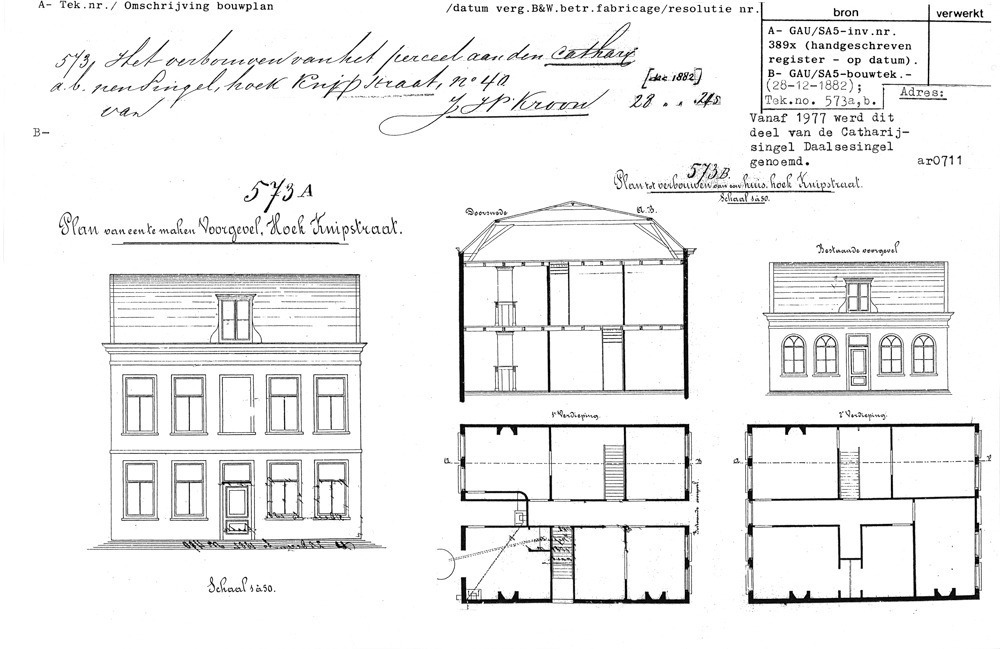 A- Tek.nr./ Omschrijving bouwplan
/datum verg.B&W.betr.fabricage/resolutie nr.
bron
verwerkt
A- GAU/SA5-inv.nr.
389x (handgeschreven
register - op datum).
B- GAU/SA5-bouwtek.-
(28-12-1882);
Tek.no. 573a,b.
Adres:
Vanaf 1977 werd dit
deel van de Catharij-
singel Daalsesingel
genoemd.
ar0711
573, Het verbouwen van het perceel aan den Catharij
a.b. nensingel, hoek Knipstraat, no 40
van J. H. Kroon
[dec. 1882]
28 " "
B-
573 A
Plan van een te maken Voorgevel, Hoek Knipstraat.
Schaal 1 à 50.
573 B.
Plan tot verbouwen van een huis, hoek Knipstraat.
Schaal 1 à 50.
Doorsnede
a. B.
Bestaande voorgevel
1e Verdieping.
2e Verdieping.
a
B
a
B